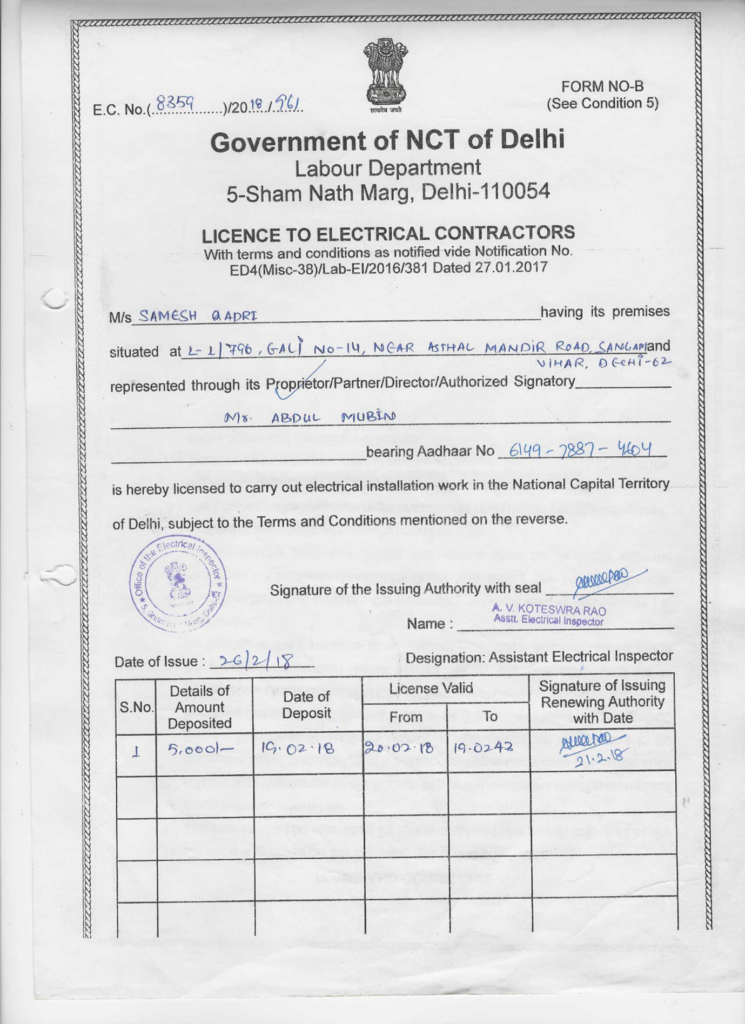 सत्यमेव जयते
E.C. No.(..8359..........)/2018./.961.
FORM NO-B
(See Condition 5)
Government of NCT of Delhi
Labour Department
5-Sham Nath Marg, Delhi-110054
LICENCE TO ELECTRICAL CONTRACTORS
With terms and conditions as notified vide Notification No.
ED4(Misc-38)/Lab-EI/2016/381 Dated 27.01.2017
M/s SAMESH QADRI having its premises
situated at L-1/796, GALI NO-14, NEAR ASTHAL MANDIR ROAD, SANGAM and
VIHAR, DELHI-62
represented through its Proprietor/Partner/Director/Authorized Signatory
Mr. ABDUL MUBIN
bearing Aadhaar No 6149-7887-4604
is hereby licensed to carry out electrical installation work in the National Capital Territory
of Delhi, subject to the Terms and Conditions mentioned on the reverse.
Office of the Electrical Inspector
Signature of the Issuing Authority with seal
A. V. KOTESWRA RAO
Asstt. Electrical Inspector
Name :
Date of Issue : 26/2/18
Designation: Assistant Electrical Inspector
S.No. Details of Amount Deposited Date of Deposit License Valid From To Signature of Issuing Renewing Authority with Date
1 5,000/- 19.02.18 20.02.18 19.0242 21.2.18